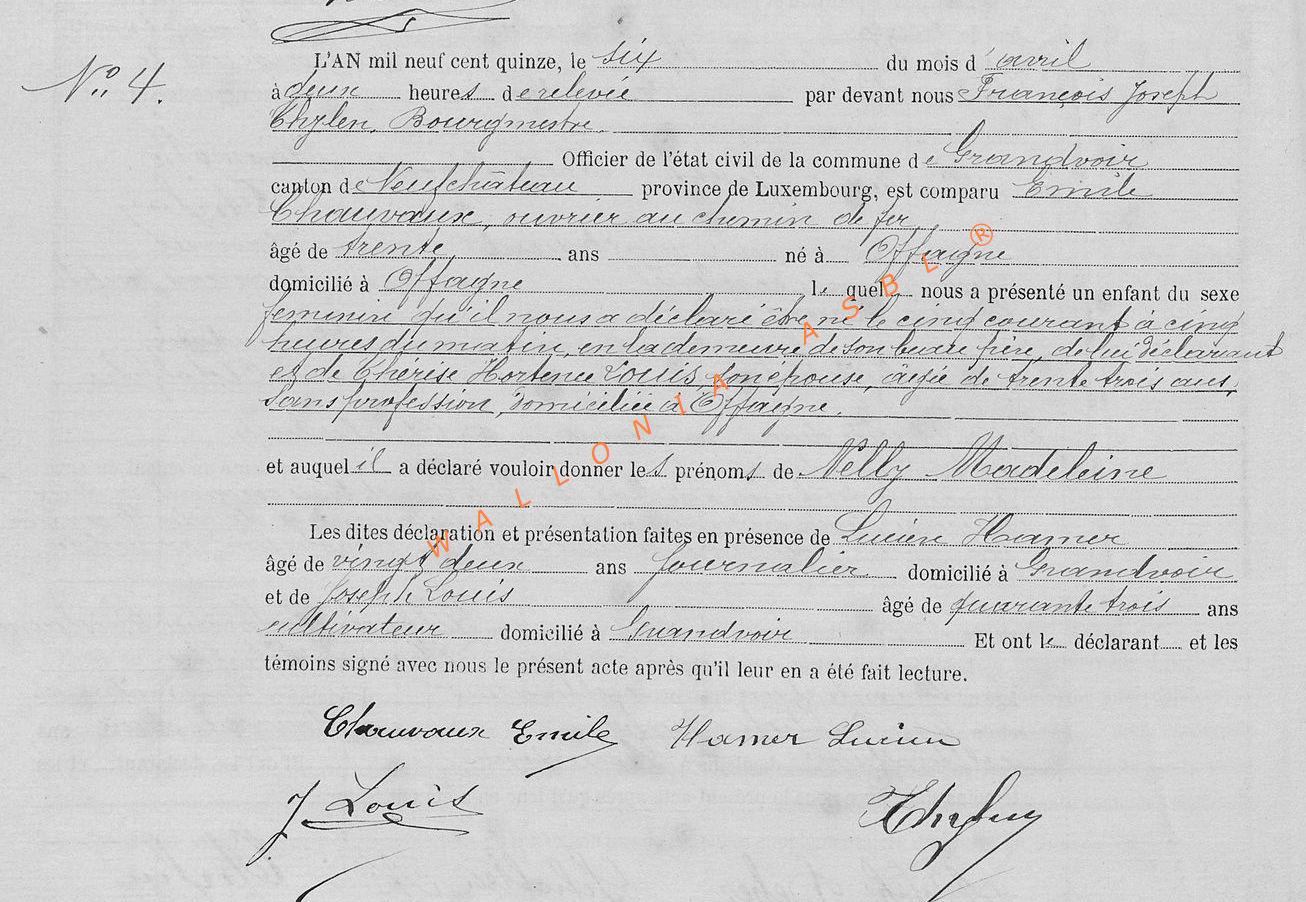 N° 4.
L'AN mil neuf cent quinze, le six du mois d'avril
à deux heures de relevée par devant nous François Joseph
Thylen, Bourgmestre.
Officier de l'état civil de la commune de Grandvoir
canton de Neufchâteau province de Luxembourg, est comparu Emile
Chauvaux, ouvrier au chemin de fer
âgé de trente ans né à Offagne
domicilié à Offagne lequel nous a présenté un enfant du sexe
feminin qu'il nous a déclaré être né le cinq courant à cinq
heures du matin, en la demeure de son beau frère, de lui déclarant
et de Thérèse Hortence Louis, son épouse, âgée de trente trois ans,
sans profession, domiciliée à Offagne.
et auquel il a déclaré vouloir donner les prénoms de Nelly Madeleine
Les dites déclaration et présentation faites en présence de Lucien Hamer
âgé de vingt deux ans journalier domicilié à Grandvoir
et de Joseph Louis âgé de quarante trois ans
cultivateur domicilié à Grandvoir Et ont le déclarant et les
témoins signé avec nous le présent acte après qu'il leur en a été fait lecture.
Chauvaux Emile Hamer Lucien
J Louis Thylen
WALLONIA ASBL ®